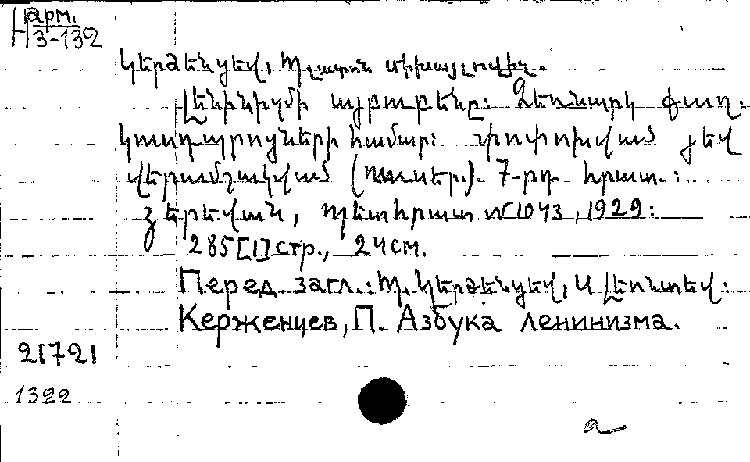 Нарм.
3-132
Կերժենցեվ, Պլատոն Միխայլովիչ.
Լենինիզմի այբուբենը: Ձեռնարկ քաղ.
կուսդպրոցների համար: Փոփոխված յեվ
վերամշակված (ռուսեր.). 7-րդ հրատ.:
Յերեվան, Պետհրատ №1043, 1929:
285[1]стр., 24см.
Перед загл.: Պ. Կերժենցեվ, Ա Լեոնտեվ.
Керженцев, П. Азбука ленинизма.
21721
1322